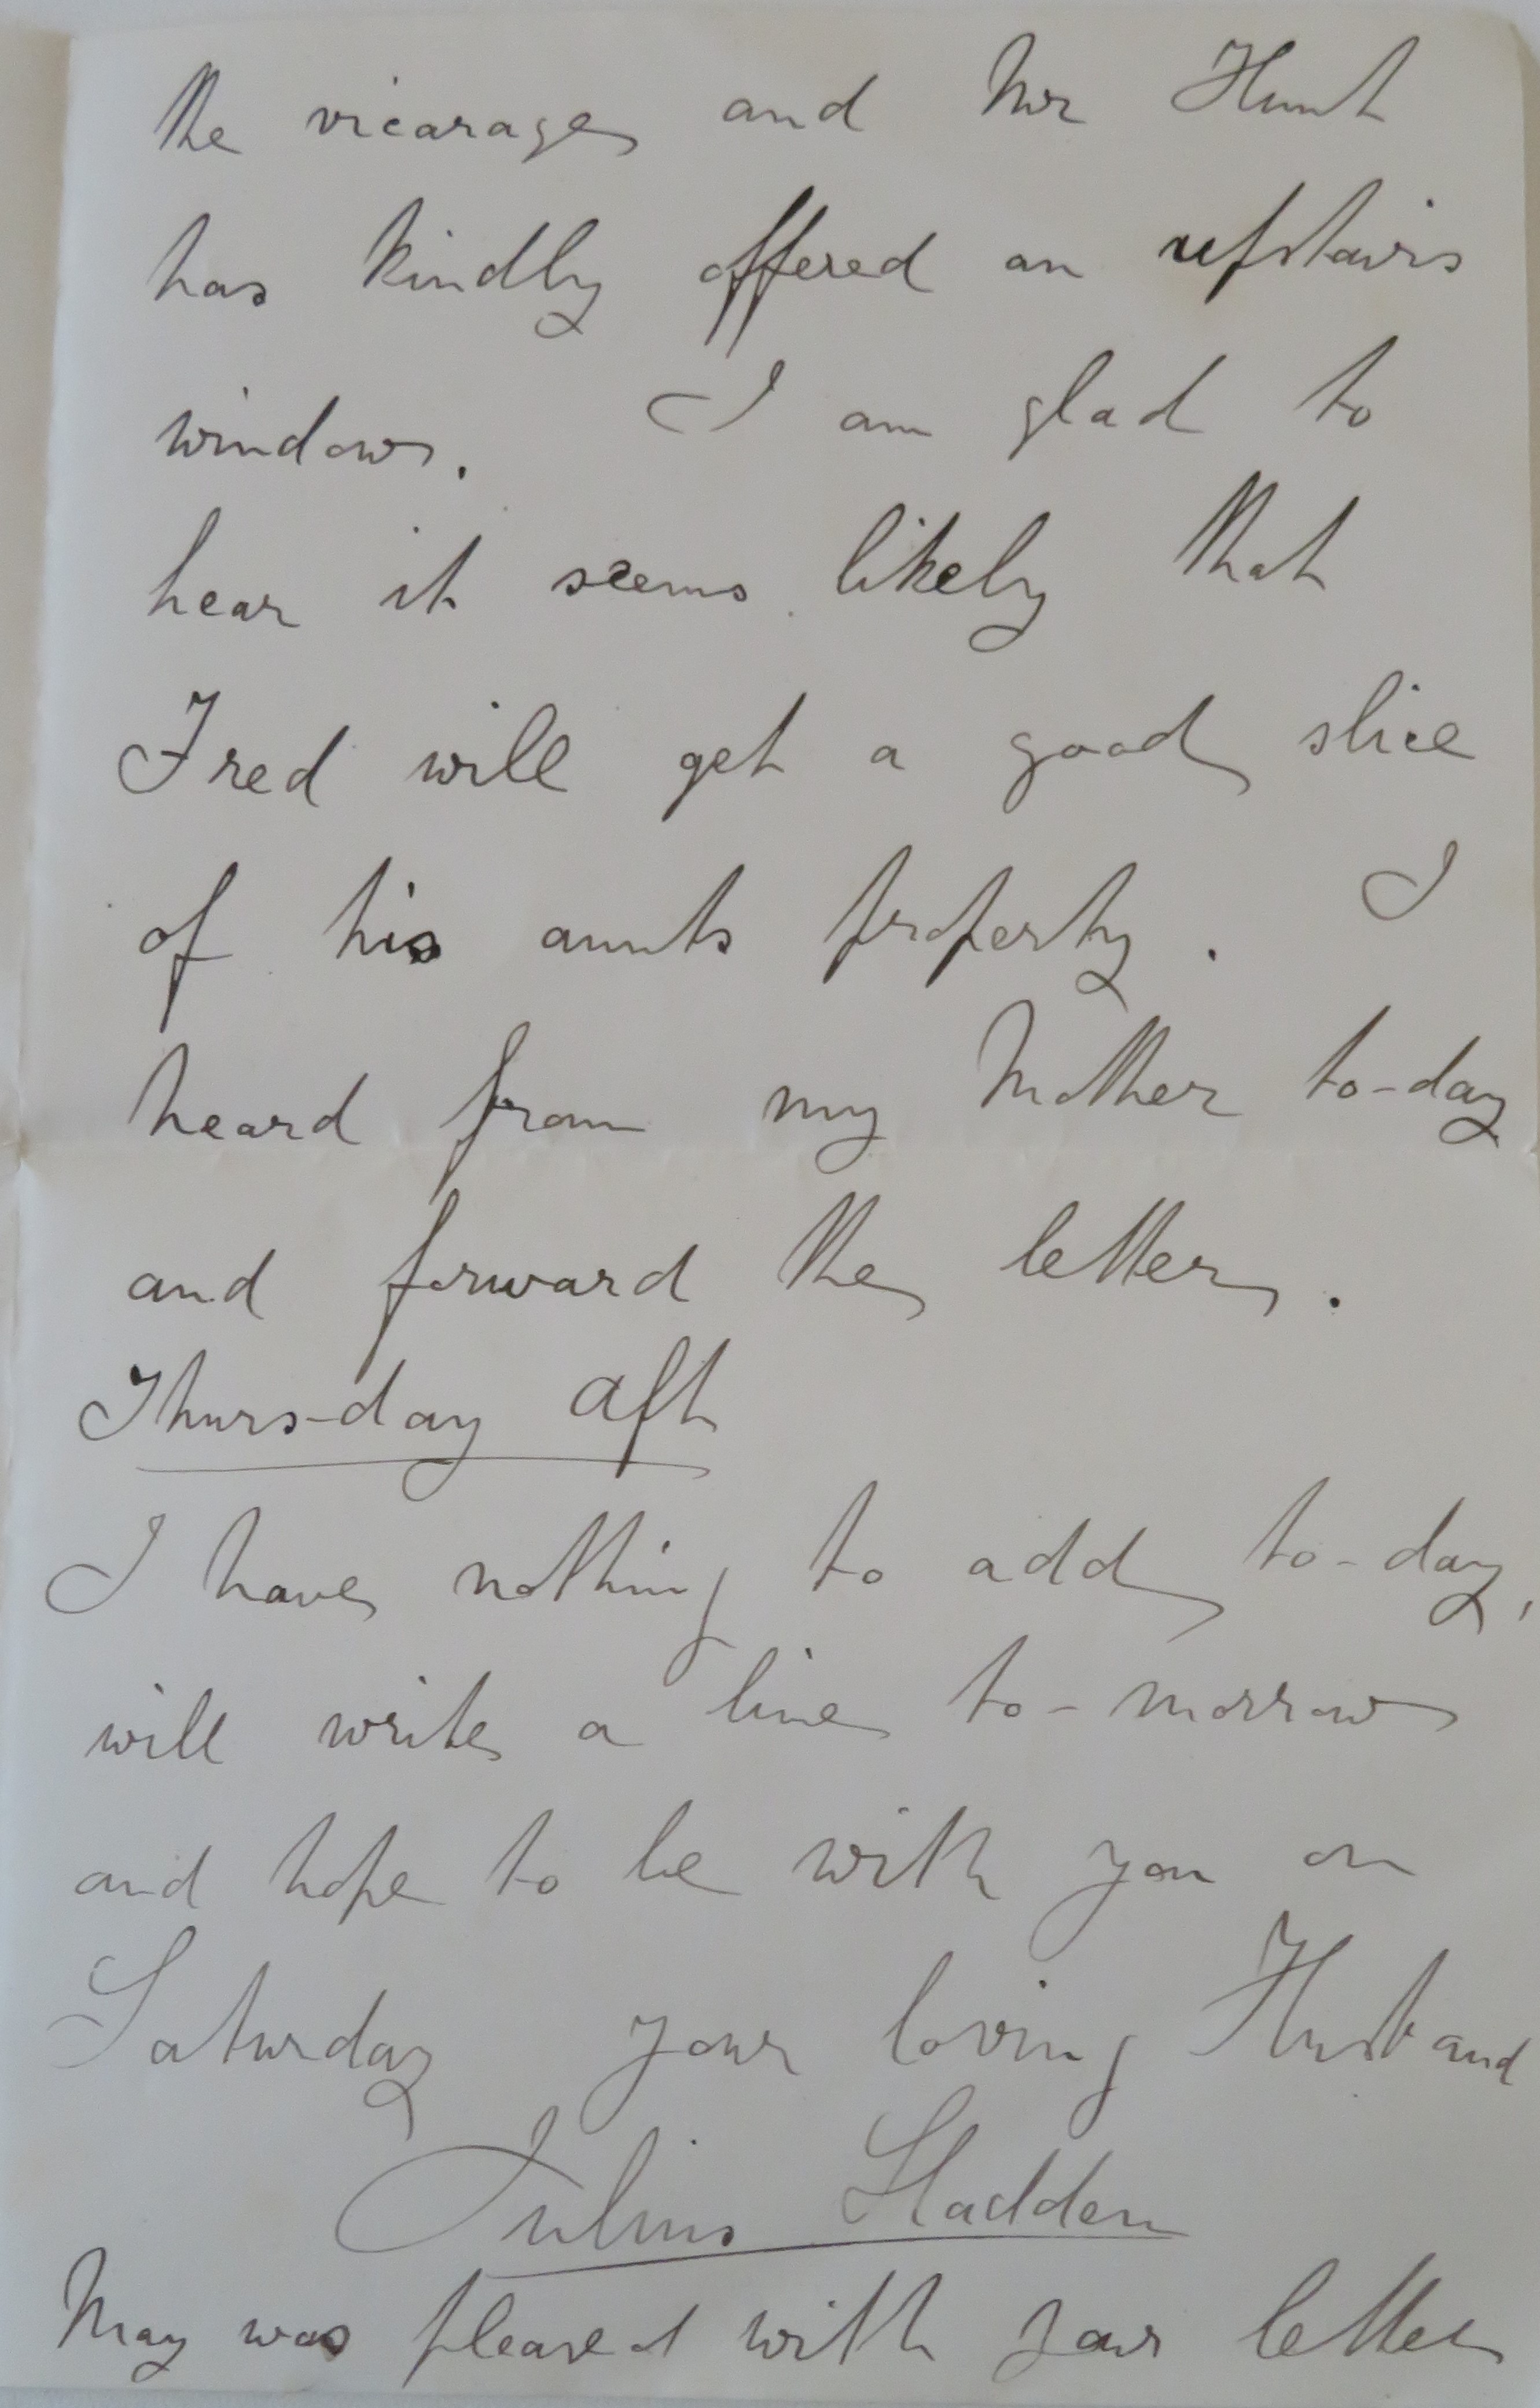 the vicarage and Mr Hunt
has kindly offered an upstairs
window. I am glad to
hear it seems likely that
Fred will get a good slice
of his aunts property. I
heard from my Mother to-day
and forward the letter.
Thurs-day aft
I have nothing to add to-day,
will write a line to-morrow
and hope to be with you on
Saturday your loving Husband
Julius Sladden
May was pleased with your letter